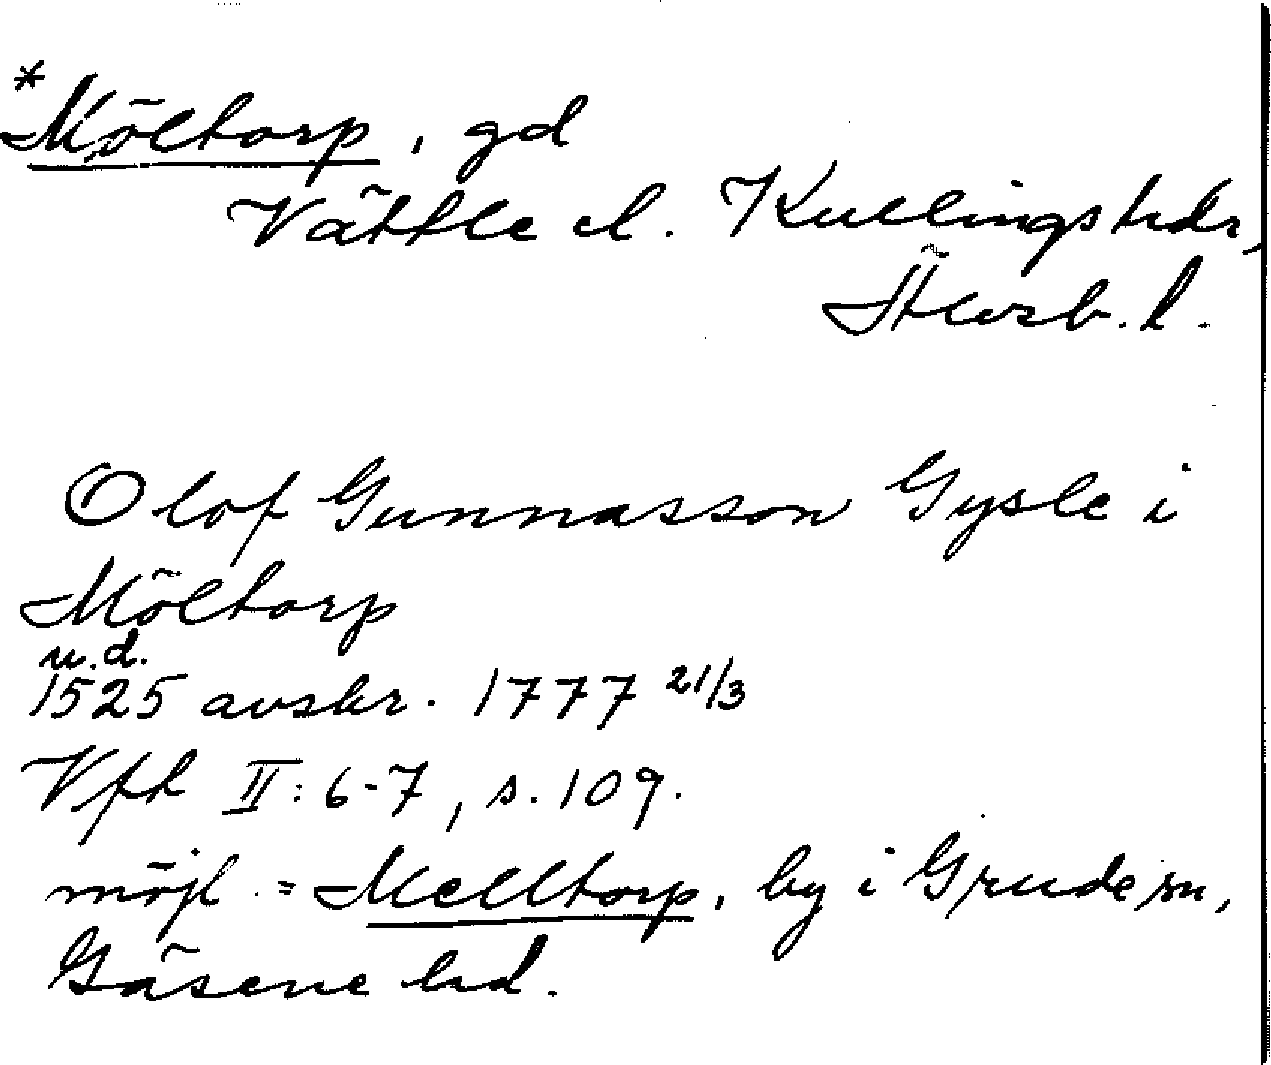 *Möltorp, gd
Vättle el. Kullings hdr,
Älvsb. l.
Olof Gunnasson Gysle i
Möltorp
u.d.
1525 avskr. 1777 21/3
Vfh II: 6-7, s. 109.
möjl. = Melltorp, by i Grude sn,
Gäsene hd.